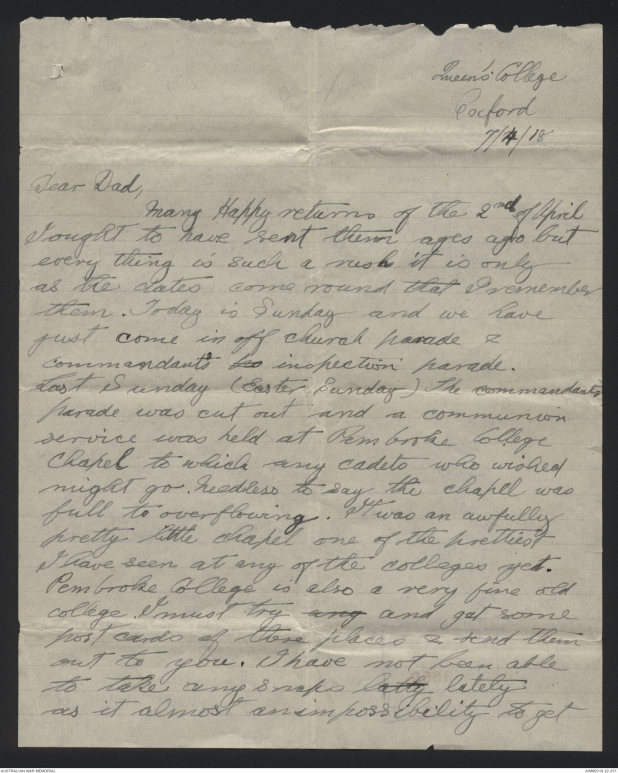 Queen's College
Oxford
7/4/18
Dear Dad,
Many Happy returns of the 2nd of April
I ought to have sent them ages ago but
every thing is such a rush it is only
as the dates come round that I remember
them. Today is Sunday and we have
just come in off church parade &
commandant's inspection parade.
Last Sunday (Easter Sunday) the commandants
parade was cut out and a communion
service was held at Pembroke College
Chapel to which any cadets who wished
might go. Needless to say the chapel was
full to overflowing. It was an awfully
pretty little chapel one of the prettiest
I have seen at any of the colleges yet.
Pembroke College is also a very fine old
college. I must try any and get some
post cards of these places & send them
out to you. I have not been able
to take any snaps latly lately
as it almost an impossibility to get
AUSTRALIAN WAR MEMORIAL